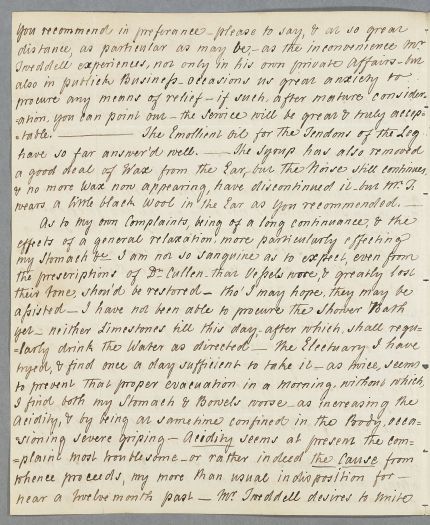 you recommend in preferance - please to say, & at so great
distance, as particular as may be, - as the inconvenience Mr
Tweddell experiences, not only in his own private Affairs - but
also in publick Business - occasions us great anxiety to
procure any means of relief - if such, after mature consider-
-ation, you can point out - the service will be great & truly accep-
=table. ——— The Emollient Oil for the Tendons of the Leg
have so far answer'd well. —— The Syrup has also removed
a good deal of Wax from the Ear, but the Noise still continues,
& no more Wax now appearing, have discontinued it - but Mr. T.
wears a little black Wool in the Ear as you recommended. —
As to my own Complaints, being of a long continuance, & the
effects of a general relaxation, more particularly effecting
my Stomach &c I am not so sanguine as to expect, even from
the prescriptions of Dr. Cullen - that Vessels wore, & greatly lost
their tone, shou'd be restored - tho' I may hope, they may be
assisted - I have not been able to procure the Shower Bath
yet - neither Limestones till this day - after which, shall regu-
-larly drink the Water as directed - the Electuary I have
tryed, & find once a day sufficient to take it - as twice, seems
to prevent that proper evacuation in a Morning, without which,
I find both my Stomach & Bowels worse - as increasing the
Acidity, & by being at sametime confined in the Body, occa-
=sioning severe griping - Acidity seems at present the com-
=plaint most troublesome - or rather indeed the Cause from
whence proceeds, my more than usual indisposition for -
near a twelvemonth past - Mr. Tweddell desires to unite